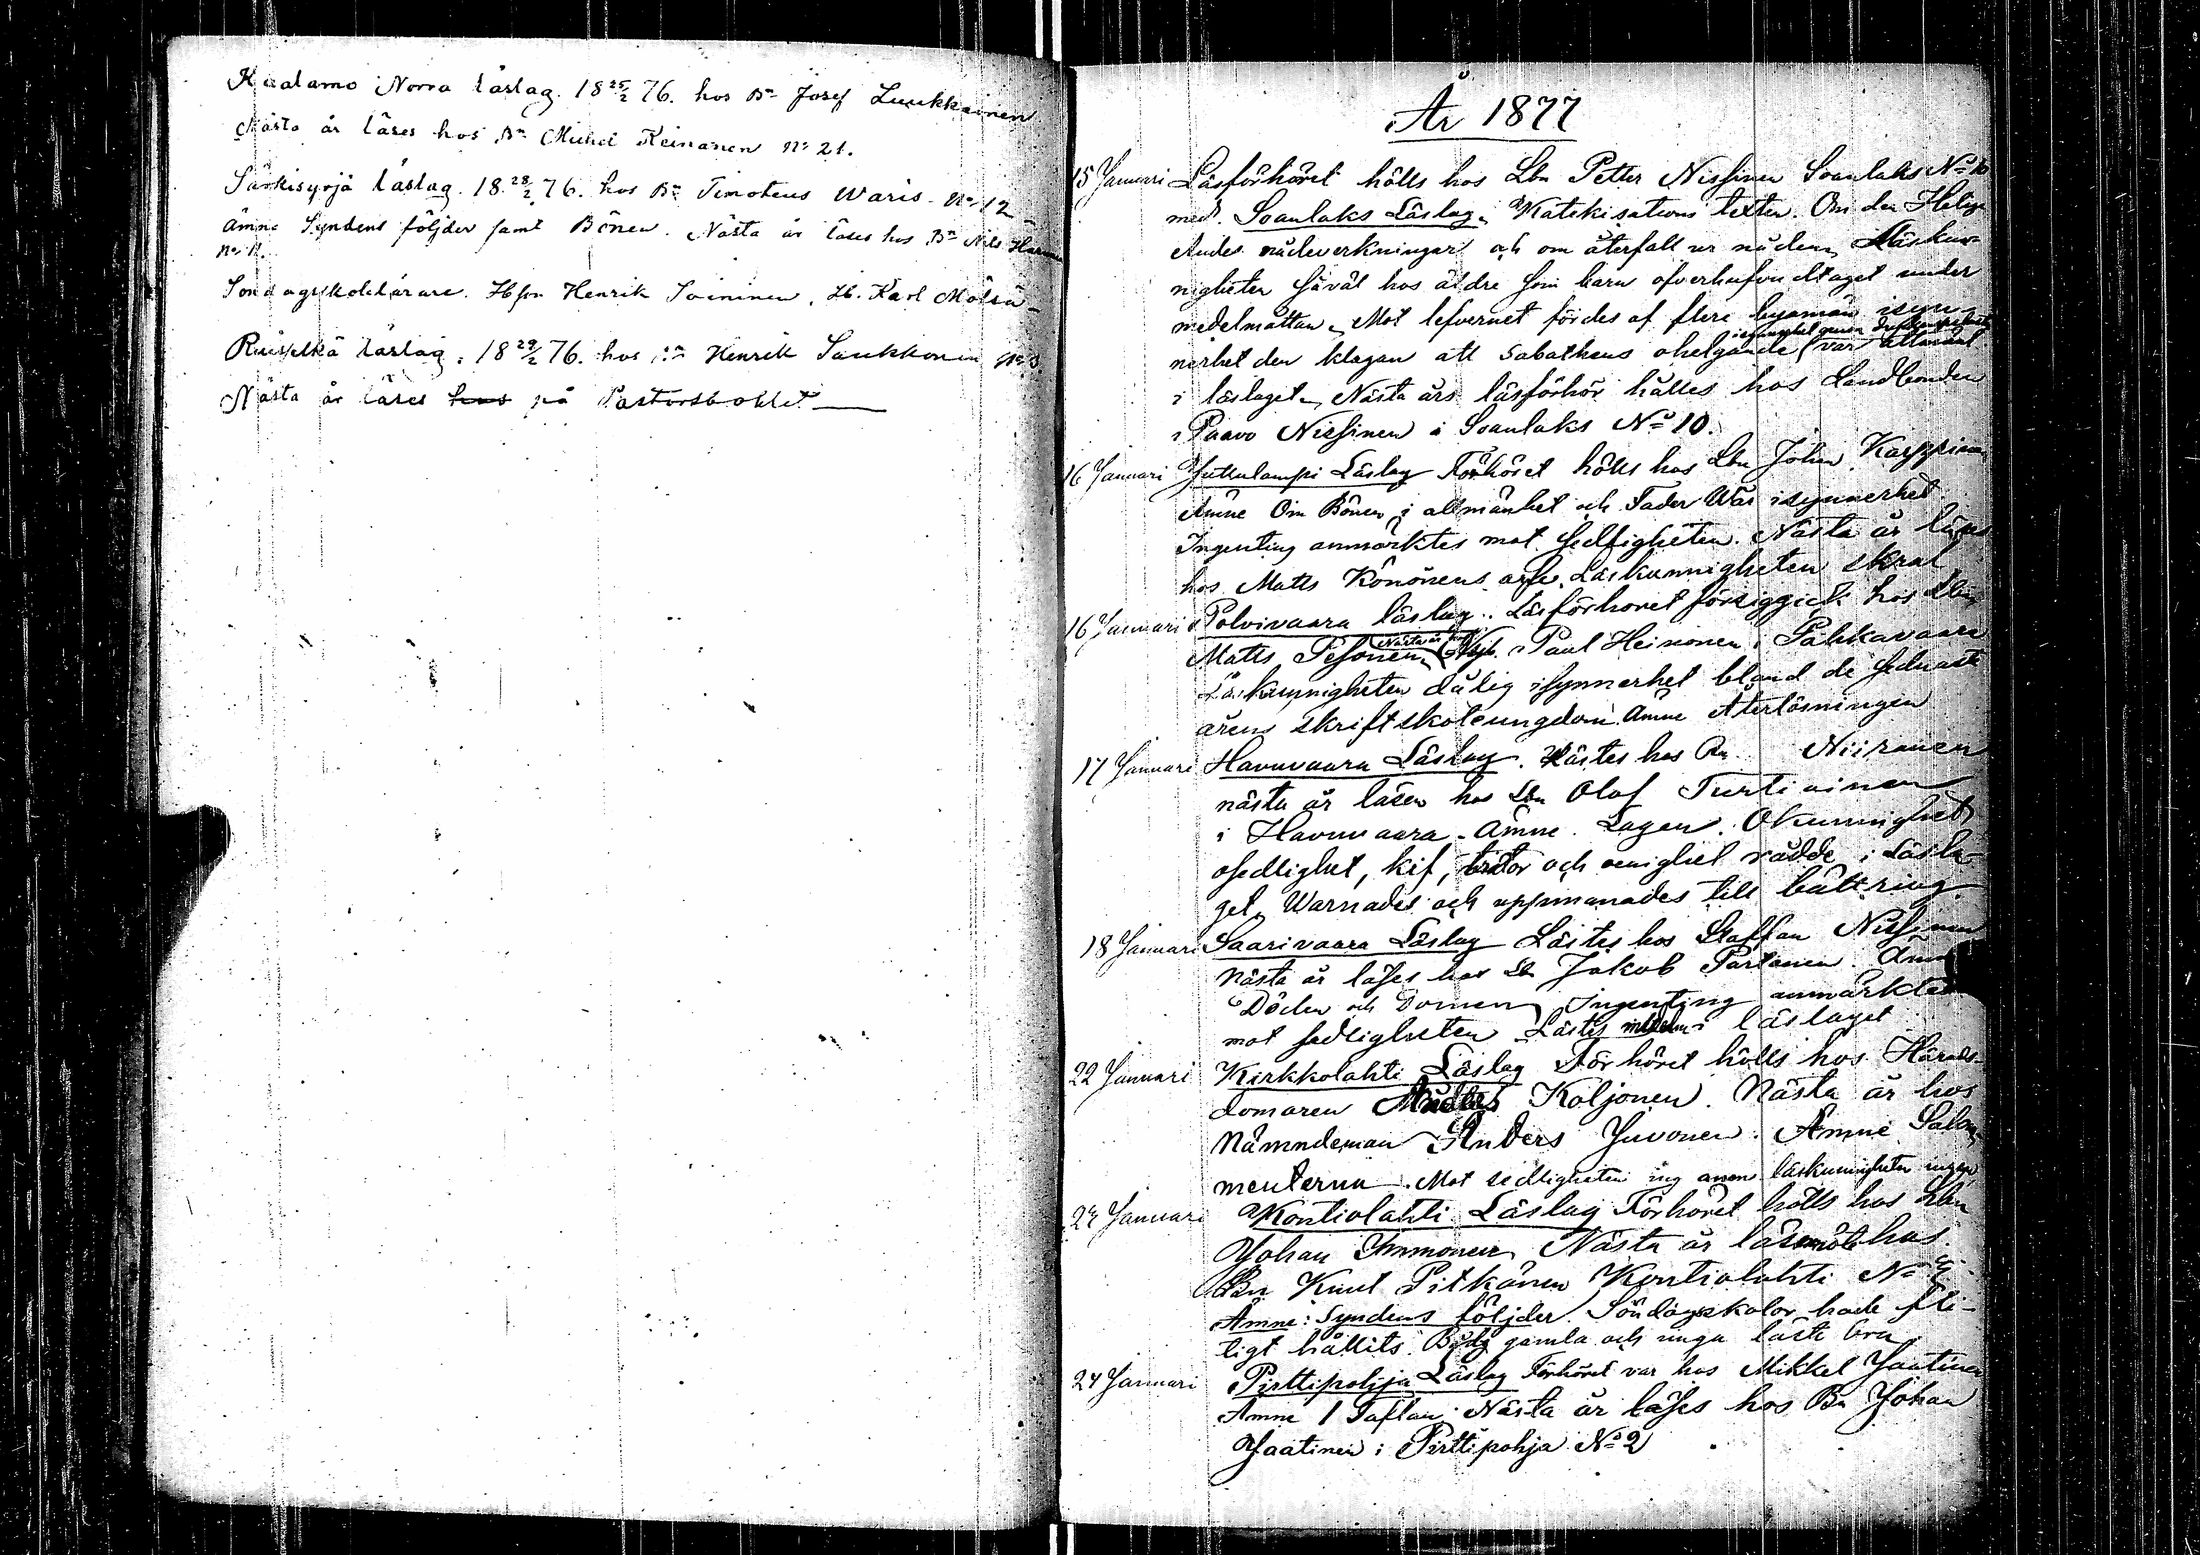 Kaalamo Norra läslag. 18 25/2 76. hos Bn Josef Luukkainen
Nästa år läses hos Bn Michel Reinanen No 21.
Särkisyrjä läslag. 18 28/2 76. hos Bn Timoteus Waris. No 12
ämne Syndens följder samt Bönen. Nästa år läses hos Bn Nils
No 11.
Söndagsskolelärare. Hbson Henrik Soininen, H. Karl Mölsä
Ruisselkä läslag. 18 29/2 76. hos Bn Henrik Saukkonen No 3.
Nästa år läses hos på Pastorsbohlet
År 1877
15 Januari Läsförhöret hölls hos Lbn Petter Nissinen Soanlaks No 10
med Soanlaks Läslag. Katekisations texten. Om den Helige
Andes nådeverkningar och om återfall ur nåden. Läskun-
nigheten såväl hos äldre som barn öfverhufvudtaget under
medelmåttan. Mot lefvernet fördes af flere byamän isyn-
nerhet den klagan att Sabathens ohelgande var allmänt
i läslaget. Nästa års läsförhör hålles hos Landbonden
Paavo Nissinen i Soanlaks No 10.
16 Januari Jutkulampi Läslag Förhöret hölls hos Lbn Johan Karppinen
Ämne Om Bönen i allmänhet och Fader Wår isynnerhet
Ingenting anmärktes mot sedligheten. Nästa år läses
hos Matts Könönens arfv. Läskunnigheten skral
16 Januari Polvivaara läslag. Läsförhöret försiggick hos Lbn
Matts Pesonen. Nästa år hos Paul Heinonen i Pahkavaara
Läskunnigheten dålig isynnerhet bland de sednaste
årens skriftskoleungdom. Ämne Återlösningen
17 Januari Havuvaara Läslag. Lästes hos Bn Niiranen
nästa år läsen hos Lbn Olof Turtiainen
i Havuvaara. Ämne. Lagen. Okunnighet,
osedlighet, kif, trätor och oenighet rådde i Läsla-
get. Warnades och uppmanades till bättring.
18 Januari Saarivaara Läslag Lästes hos Staffan Nissinen
Nästa år läses hos Lbn Jakob Partanen.
Döden och Domen. Ingenting anmärktes
mot sedligheten Lästes i läslaget
22 Januari Kirkkolahti Läslag Förhöret hölls hos Härads-
domaren Koljonen. Nästa år hos
Nämndeman Anders Juvonen. Ämne Sakra-
menterna. Mot sedligheten ing anm läskunnigheten
23 Januari Kontiolahti Läslag Förhöret hölls hos Lbn
Johan Immonen. Nästa år läsmöte hos
Lbn Knut Pitkänen Kontiolahti No
Ämne: Syndens följder. Söndagsskolor hade fli-
tigt hållits. Både gamla och unga läste bra.
24 Januari Pirttipohja Läslag Förhöret var hos Mikkel Jaatinen
Ämne 1 Taflan. Nästa år läses hos Bn Johan
Jaatinen i Pirttipohja No 2